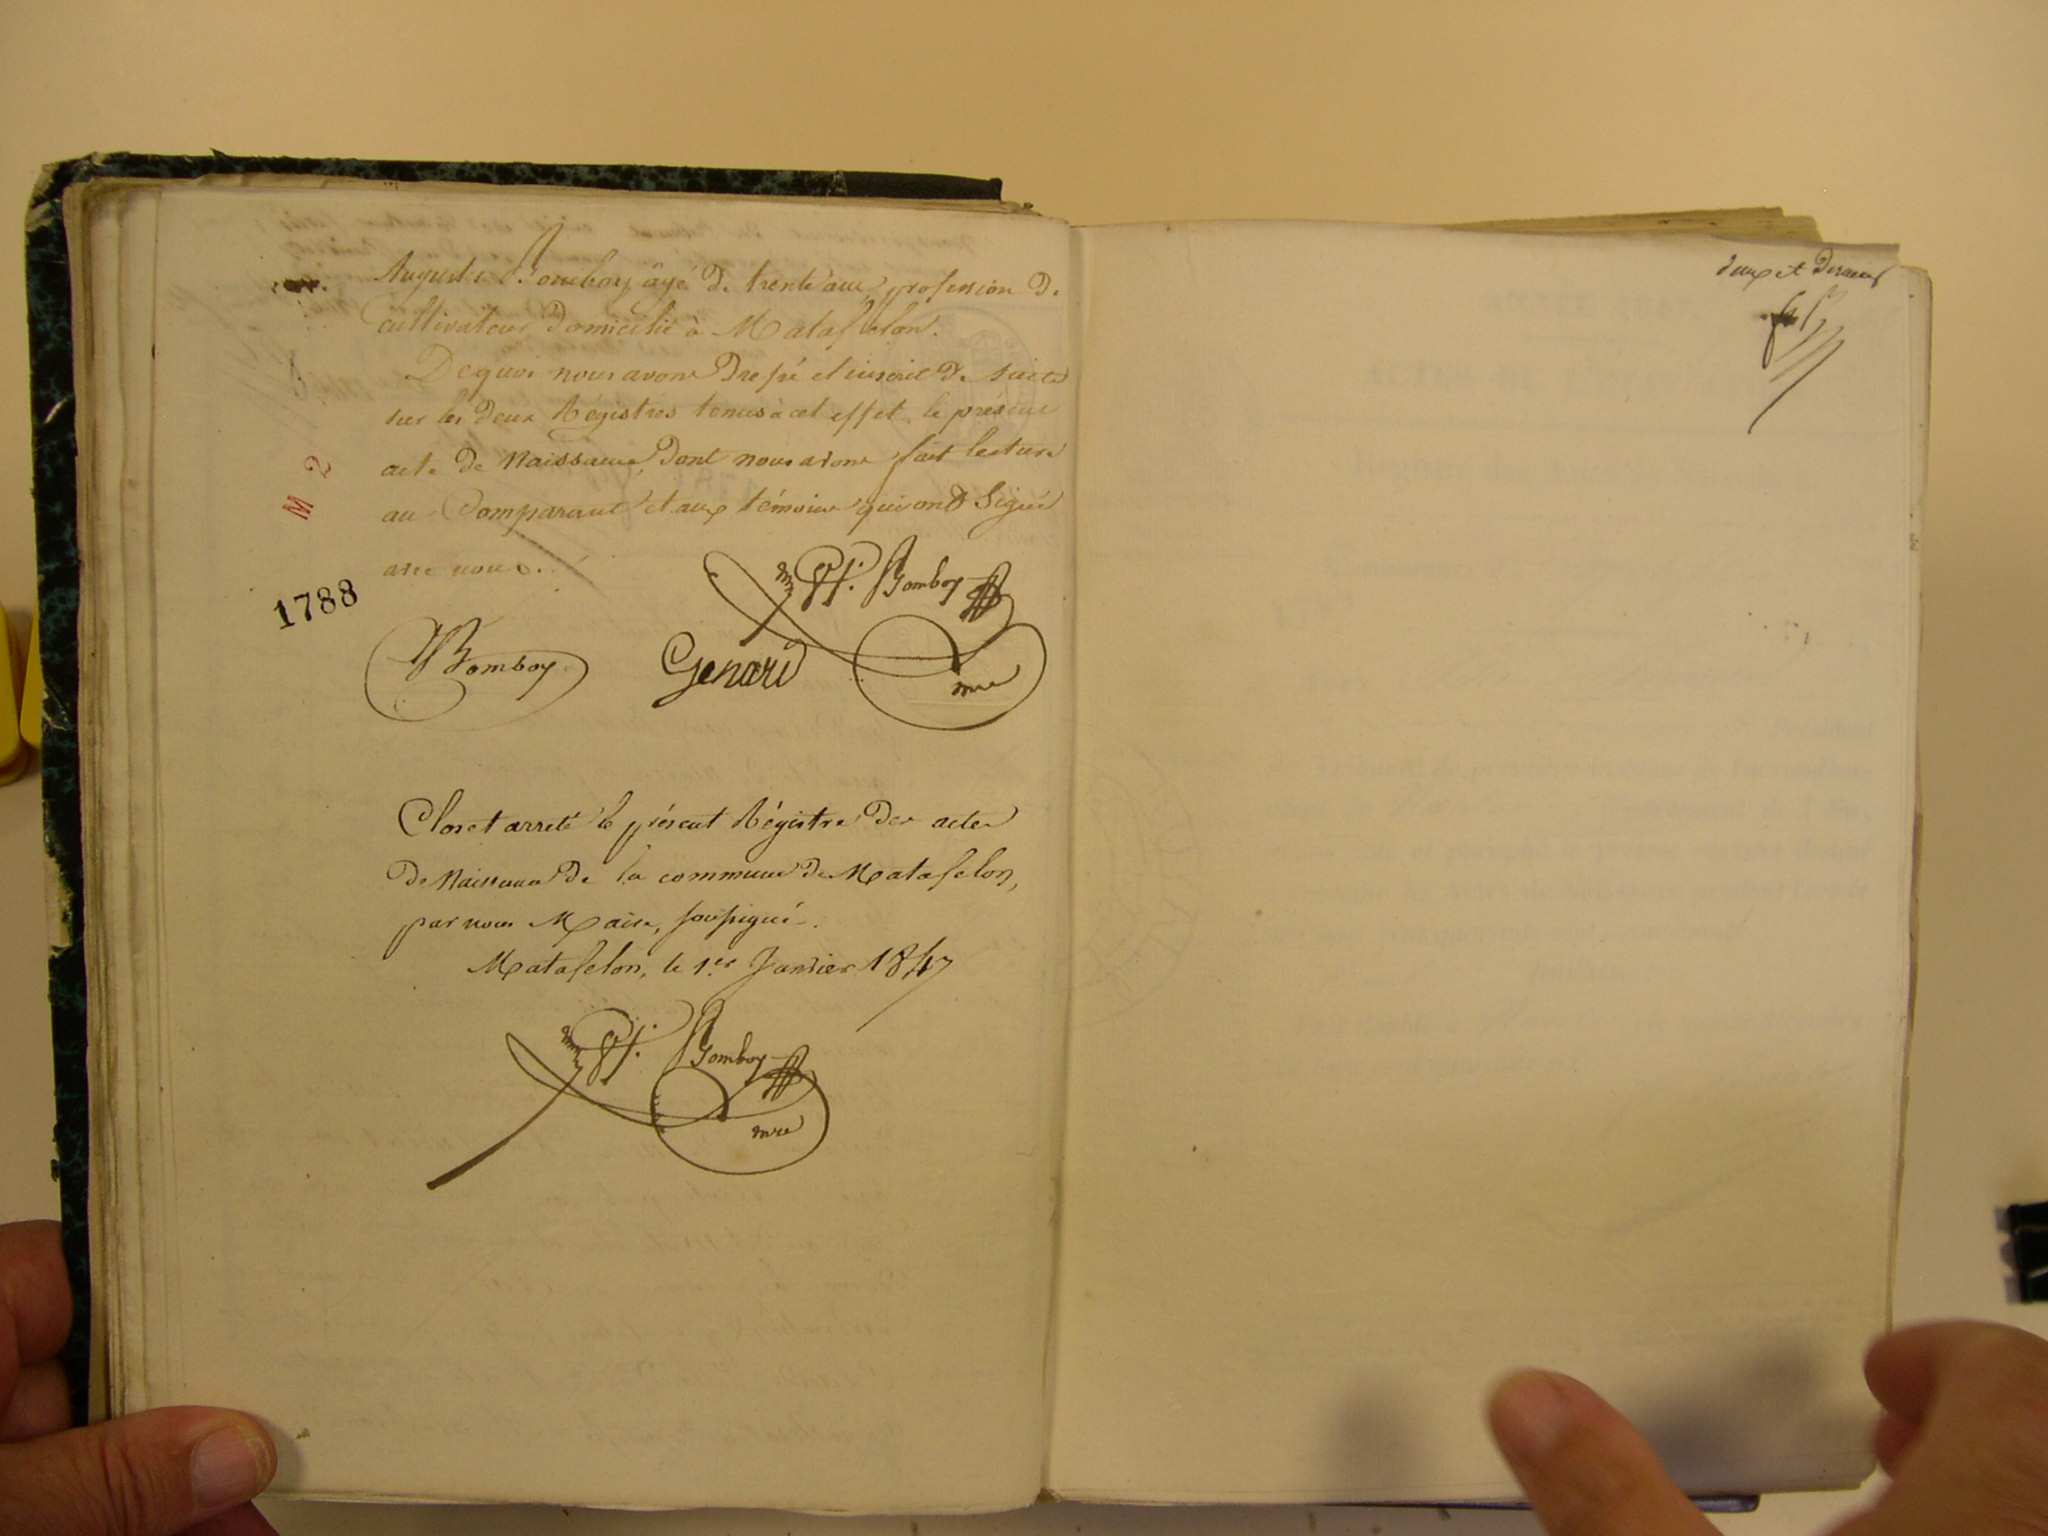 Auguste Bomboy âgé de trente ans, profession de
cultivateur, domicilié à Matafelon.
De quoi nous avons dressé et inscrit de suite
sur les deux Régistres tenus à cet effet, le présent
acte de Naissance, dont nous avons fait lecture
au Comparant et aux témoins qui ont Signé
avec nous.
M 2
1788
Pt. Bomboy
mre
Bomboy
Genard
Clos et arreté le présent Régistre des actes
de Naissance de la commune de Matafelon,
par nous Maire, soussigné.
Matafelon, le 1er Janvier 1847
Pt. Bomboy
mre
deux et dernier